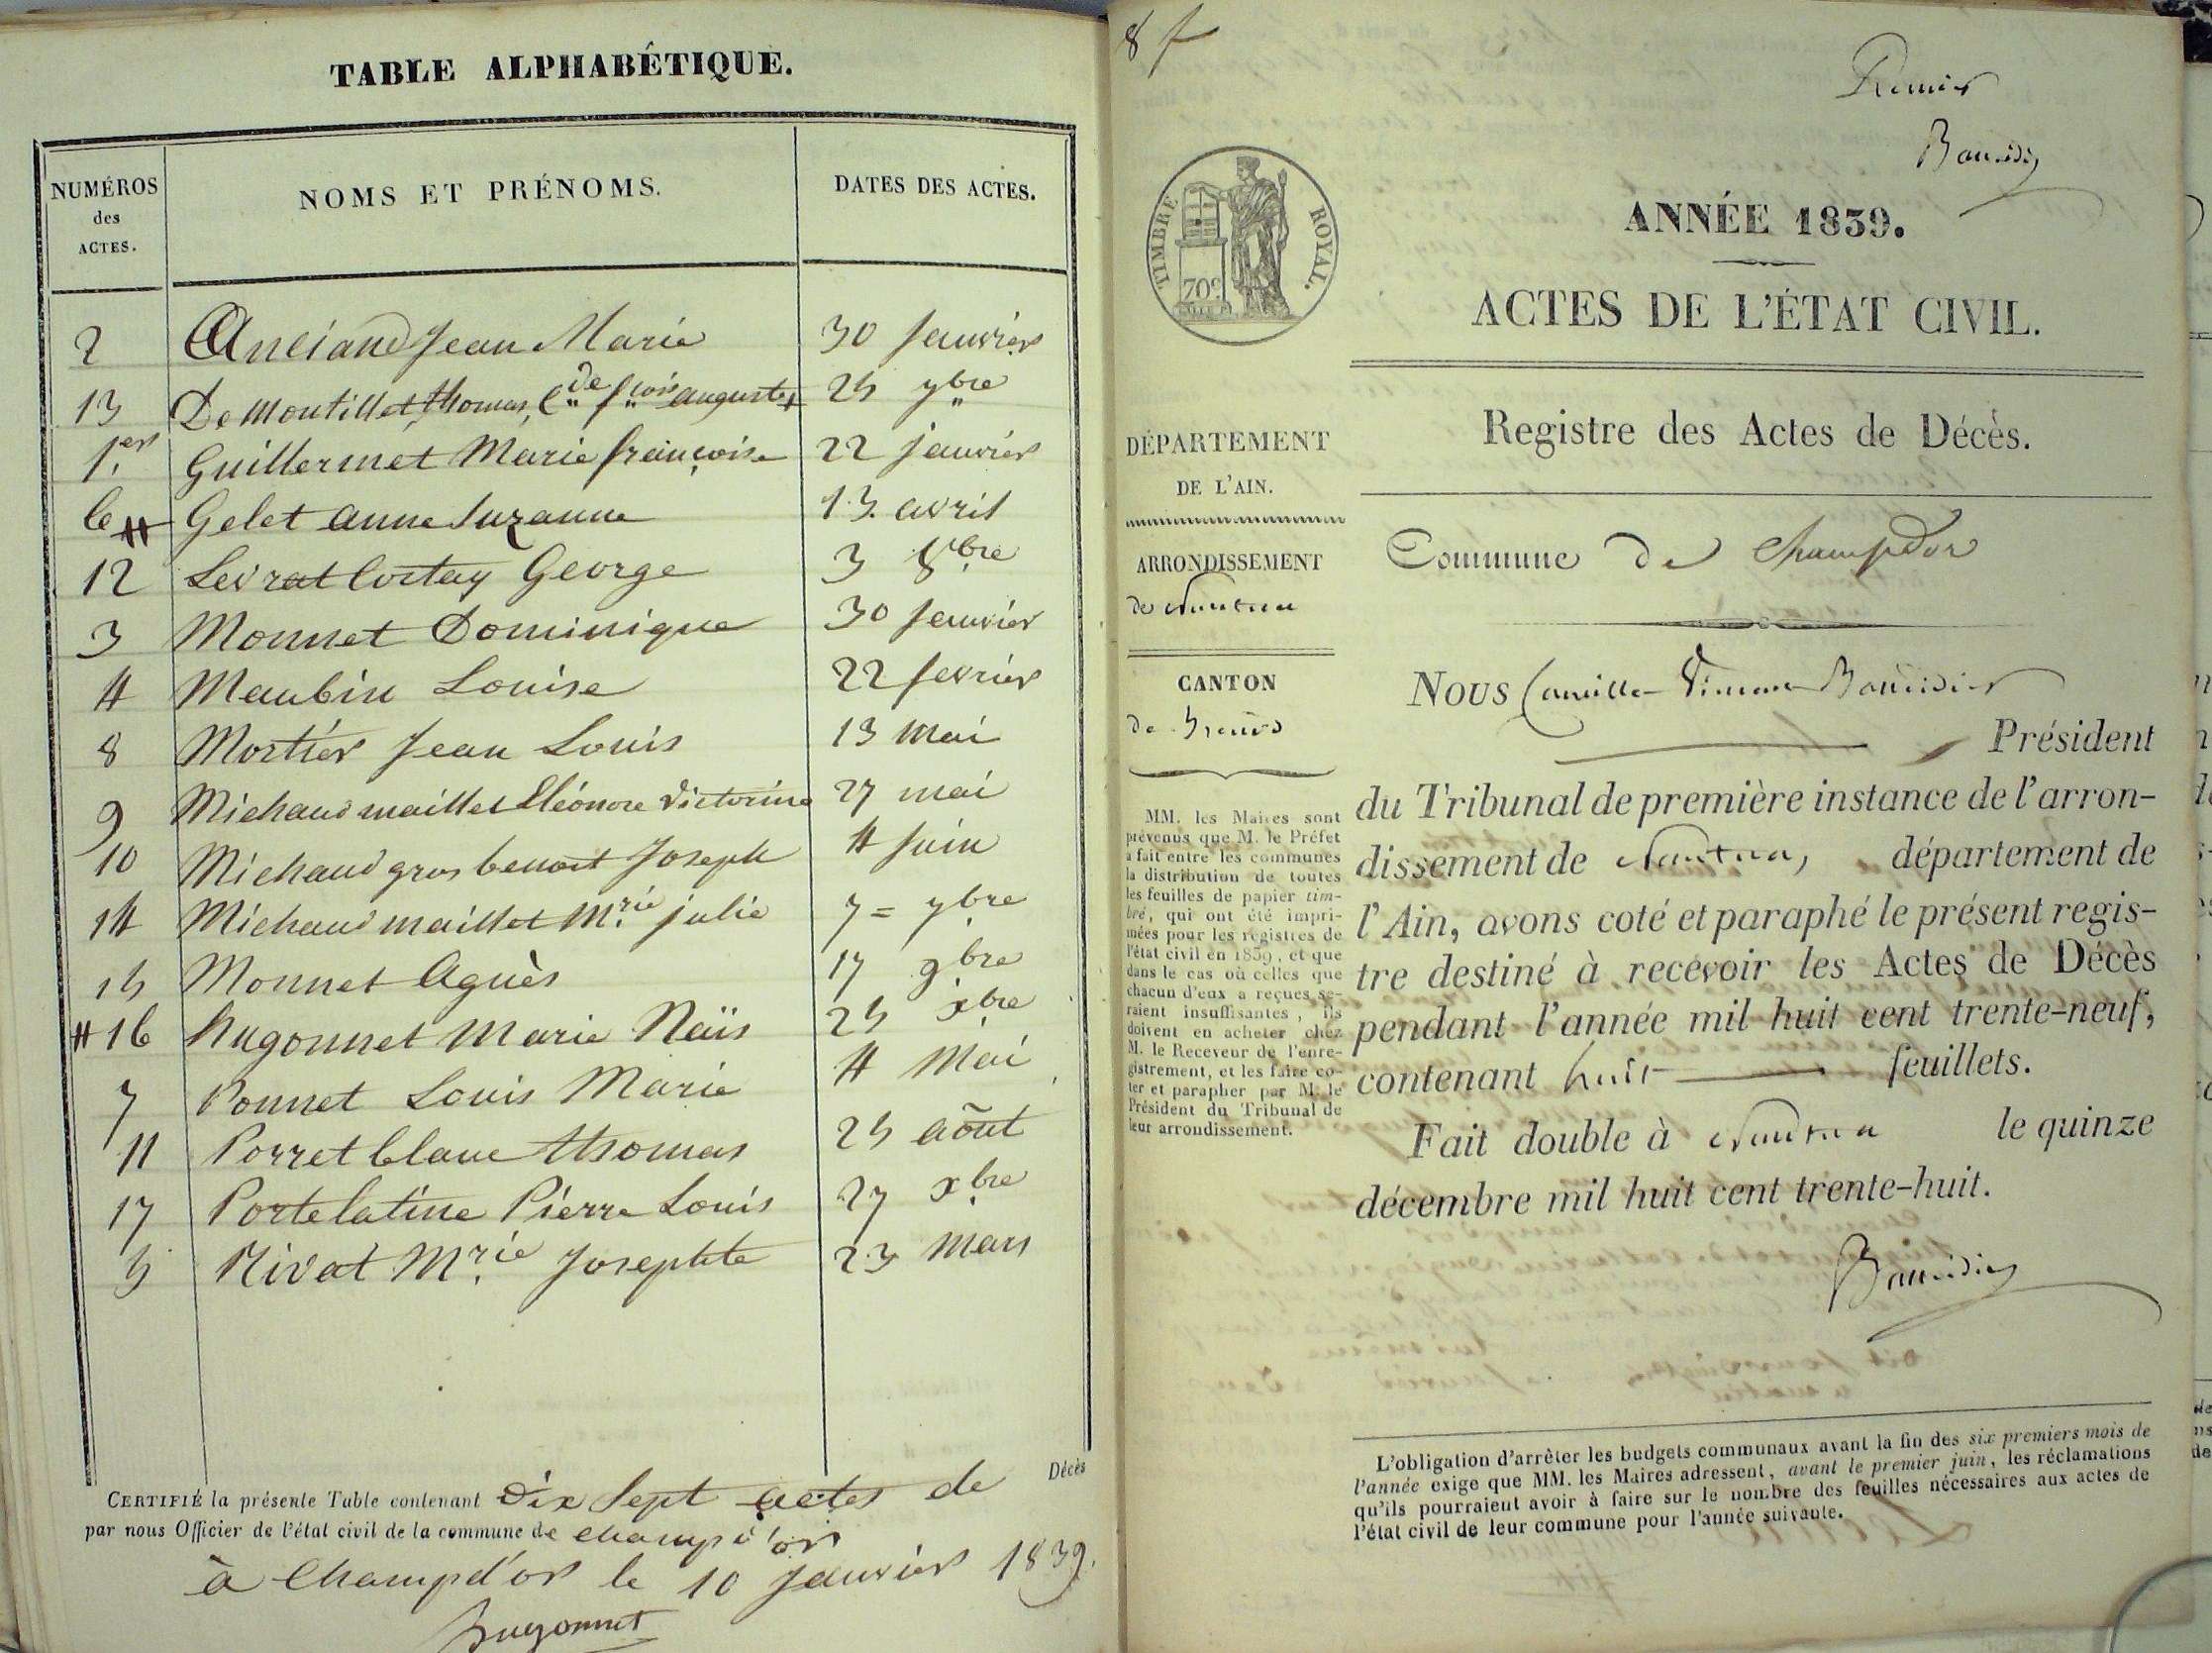 TABLE ALPHABÉTIQUE.
NUMÉROS
des
ACTES.
NOMS ET PRÉNOMS.
DATES DES ACTES.
2 Anciand Jean Marie 30 Janvier
13 De Montillet thomas, C.de f.cois auguste 25 7bre
1.er Guillermet Marie françoise 22 janvier
6 Gelet anne Suzanne 13 avril
12 Levrat Costay George 3 8bre
3 Monnet Dominique 30 Janvier
4 Maubin Louise 22 fevrier
8 Mortier Jean Louis 13 Mai
9 Michaud maillet Eléonore Victorine 27 mai
10 Michaud gros benoit Joseph 4 Juin
14 Michaud maillet M.rie julie 7 = 9bre
15 Monnet Agnès 17 9bre
16 hugonnet Marie Naïs 25 xbre
7 Ponnet Louis Marie 4 Mai
11 Porret blanc thomas 25 août
17 Portelatine Pierre Louis 27 xbre
5 Rivat M.rie Josephte 23 Mars
CERTIFIÉ la présente Table contenant Dix Sept actes de Décès
par nous Officier de l'état civil de la commune de Champd'or
à Champd'or le 10 Janvier 1839.
hugonnet
8 f
TIMBRE ROYAL.
70c
ANNÉE 1839.
ACTES DE L'ÉTAT CIVIL.
Registre des Actes de Décès.
DÉPARTEMENT
DE L'AIN.
ARRONDISSEMENT
de Nantua
CANTON
de
MM. les Maires sont
prévenus que M. le Préfet
a fait entre les communes
la distribution de toutes
les feuilles de papier tim-
bré, qui ont été impri-
mées pour les registres de
l'état civil en 1839, et que
dans le cas où celles que
chacun d'eux a reçues se-
raient insuffisantes, ils
doivent en acheter chez
M. le Receveur de l'enre-
gistrement, et les faire co-
ter et parapher par M. le
Président du Tribunal de
leur arrondissement.
Commune de Champdor
NOUS Camille
Président
du Tribunal de première instance de l'arron-
dissement de Nantua, département de
l'Ain, avons coté et paraphé le présent regis-
tre destiné à recevoir les Actes de Décès
pendant l'année mil huit cent trente-neuf,
contenant huit feuillets.
Fait double à Nantua le quinze
décembre mil huit cent trente-huit.
L'obligation d'arrêter les budgets communaux avant la fin des six premiers mois de
l'année exige que MM. les Maires adressent, avant le premier juin, les réclamations
qu'ils pourraient avoir à faire sur le nombre des feuilles nécessaires aux actes de
l'état civil de leur commune pour l'année suivante.